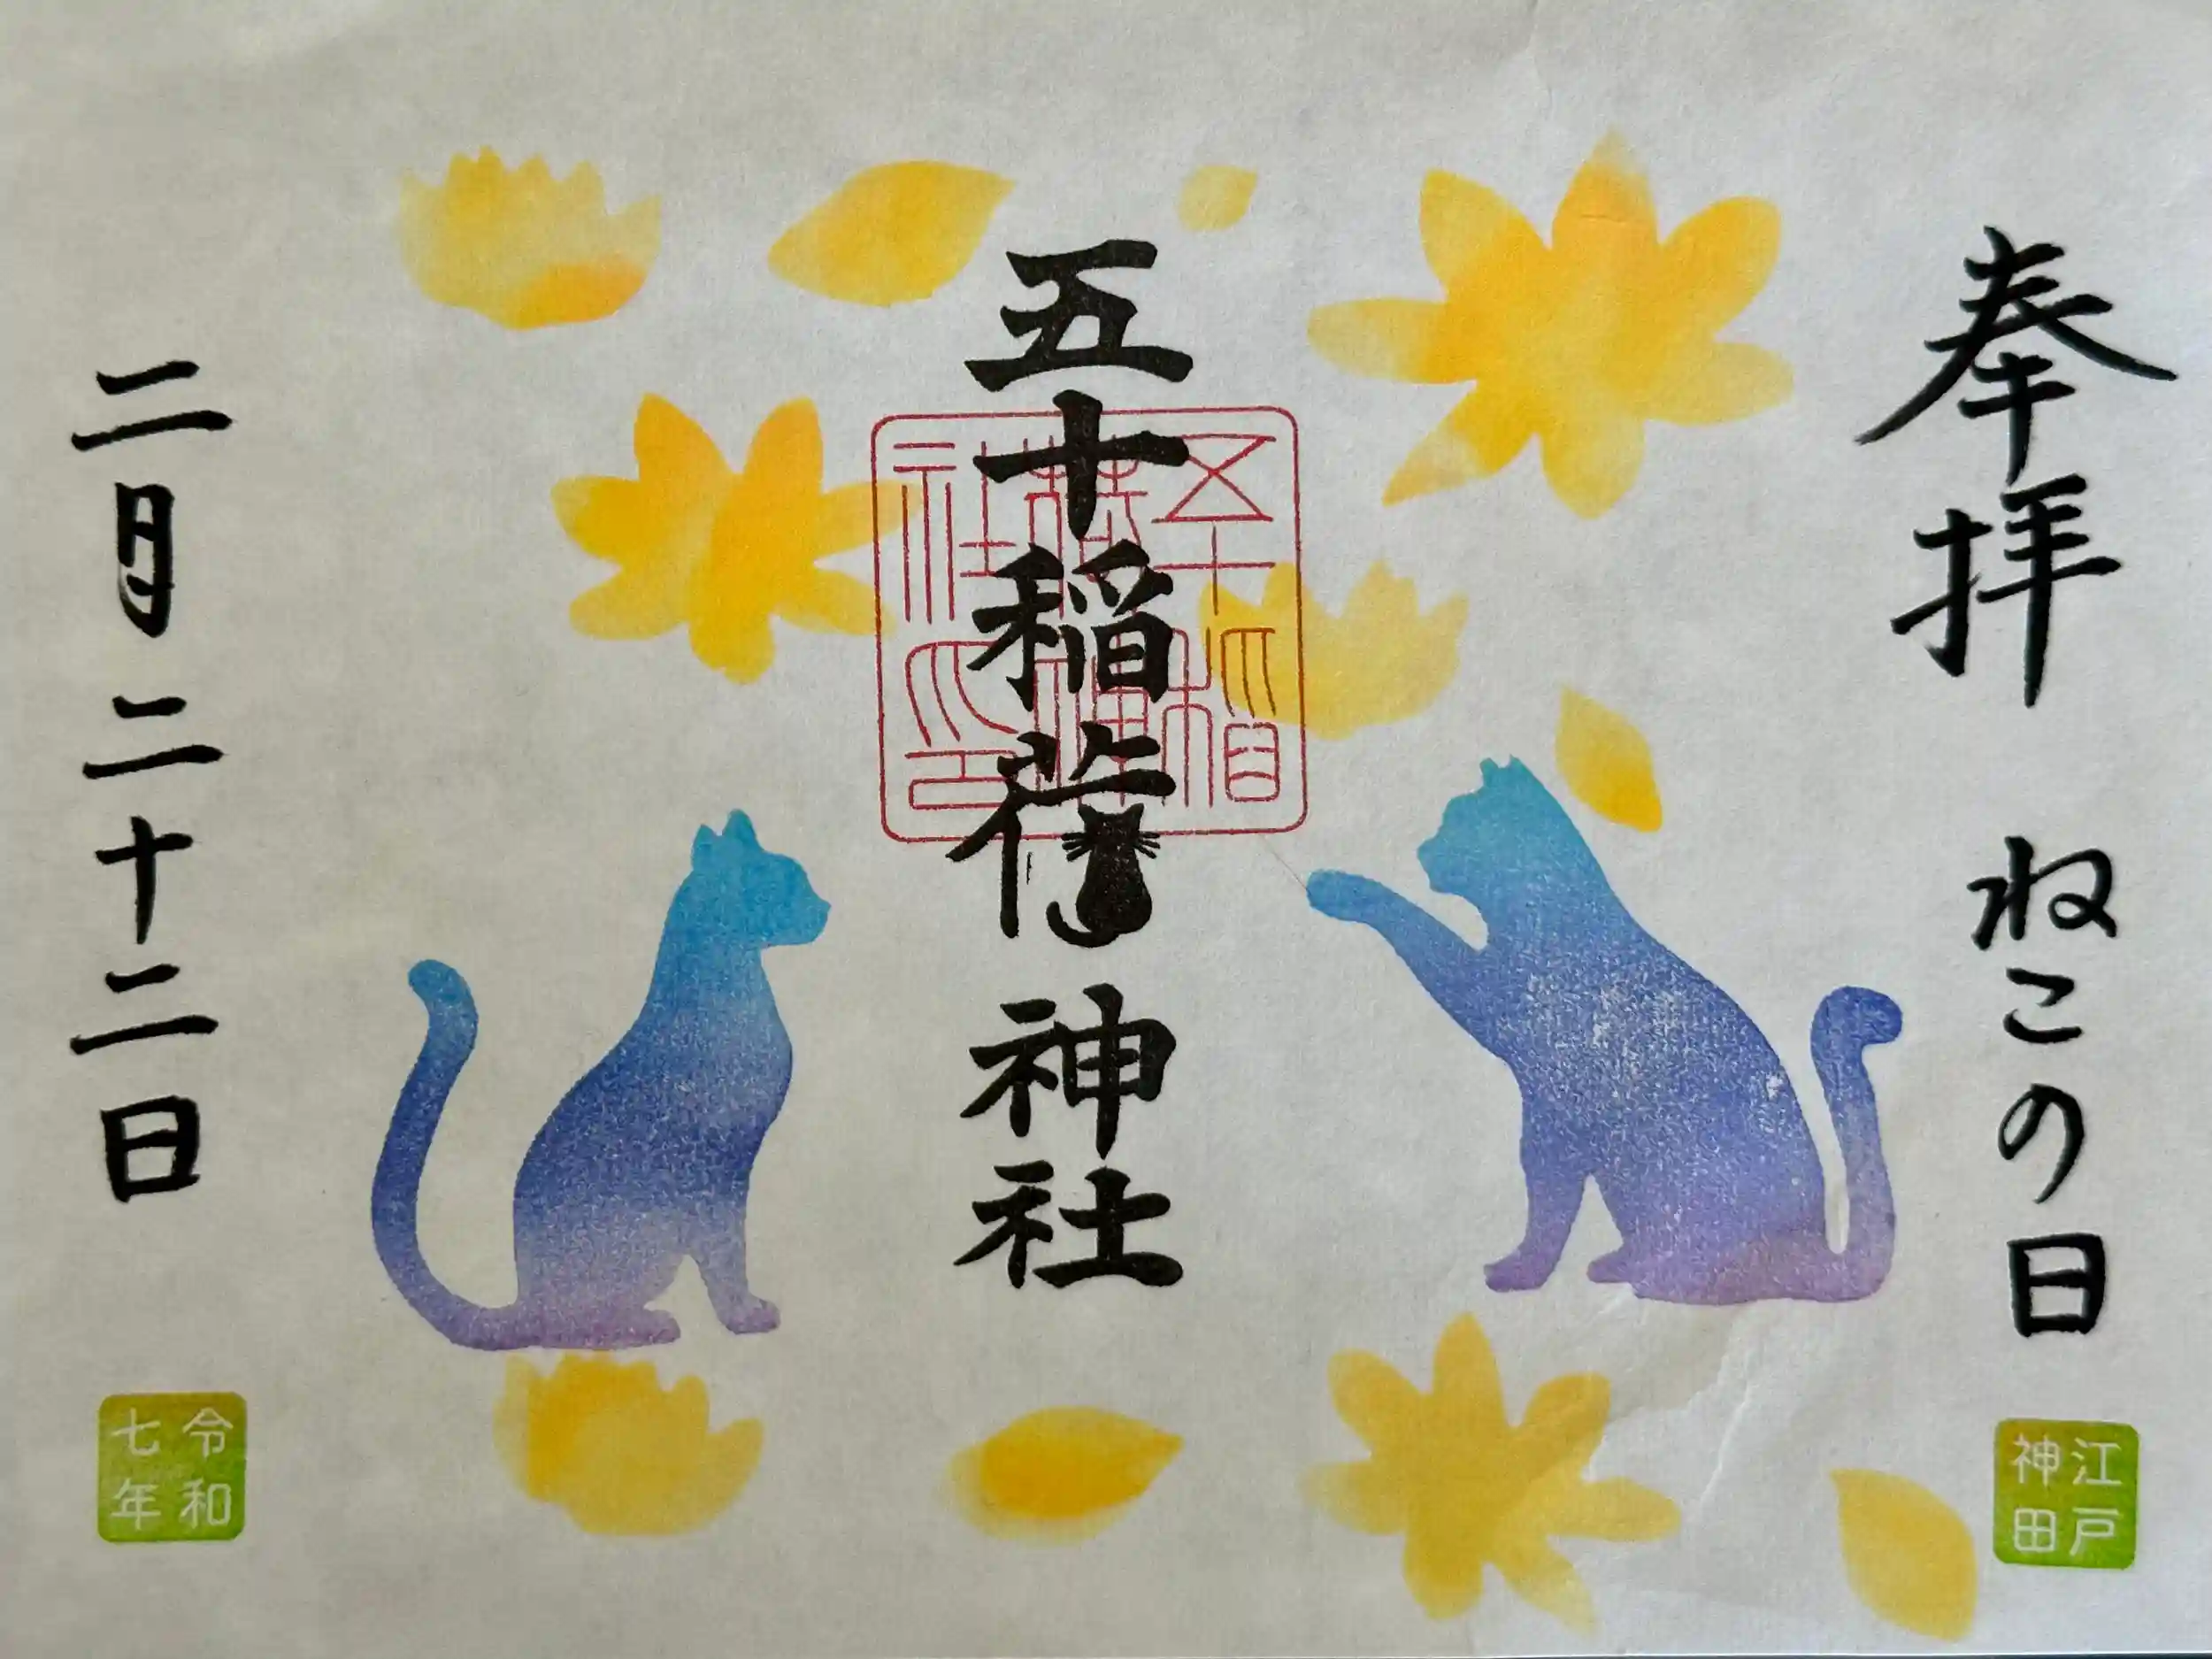 奉拝 ねこの日
江戸
神田
五十稲荷神社
五十稲
荷神
社印
二月二十二日
令和
七年